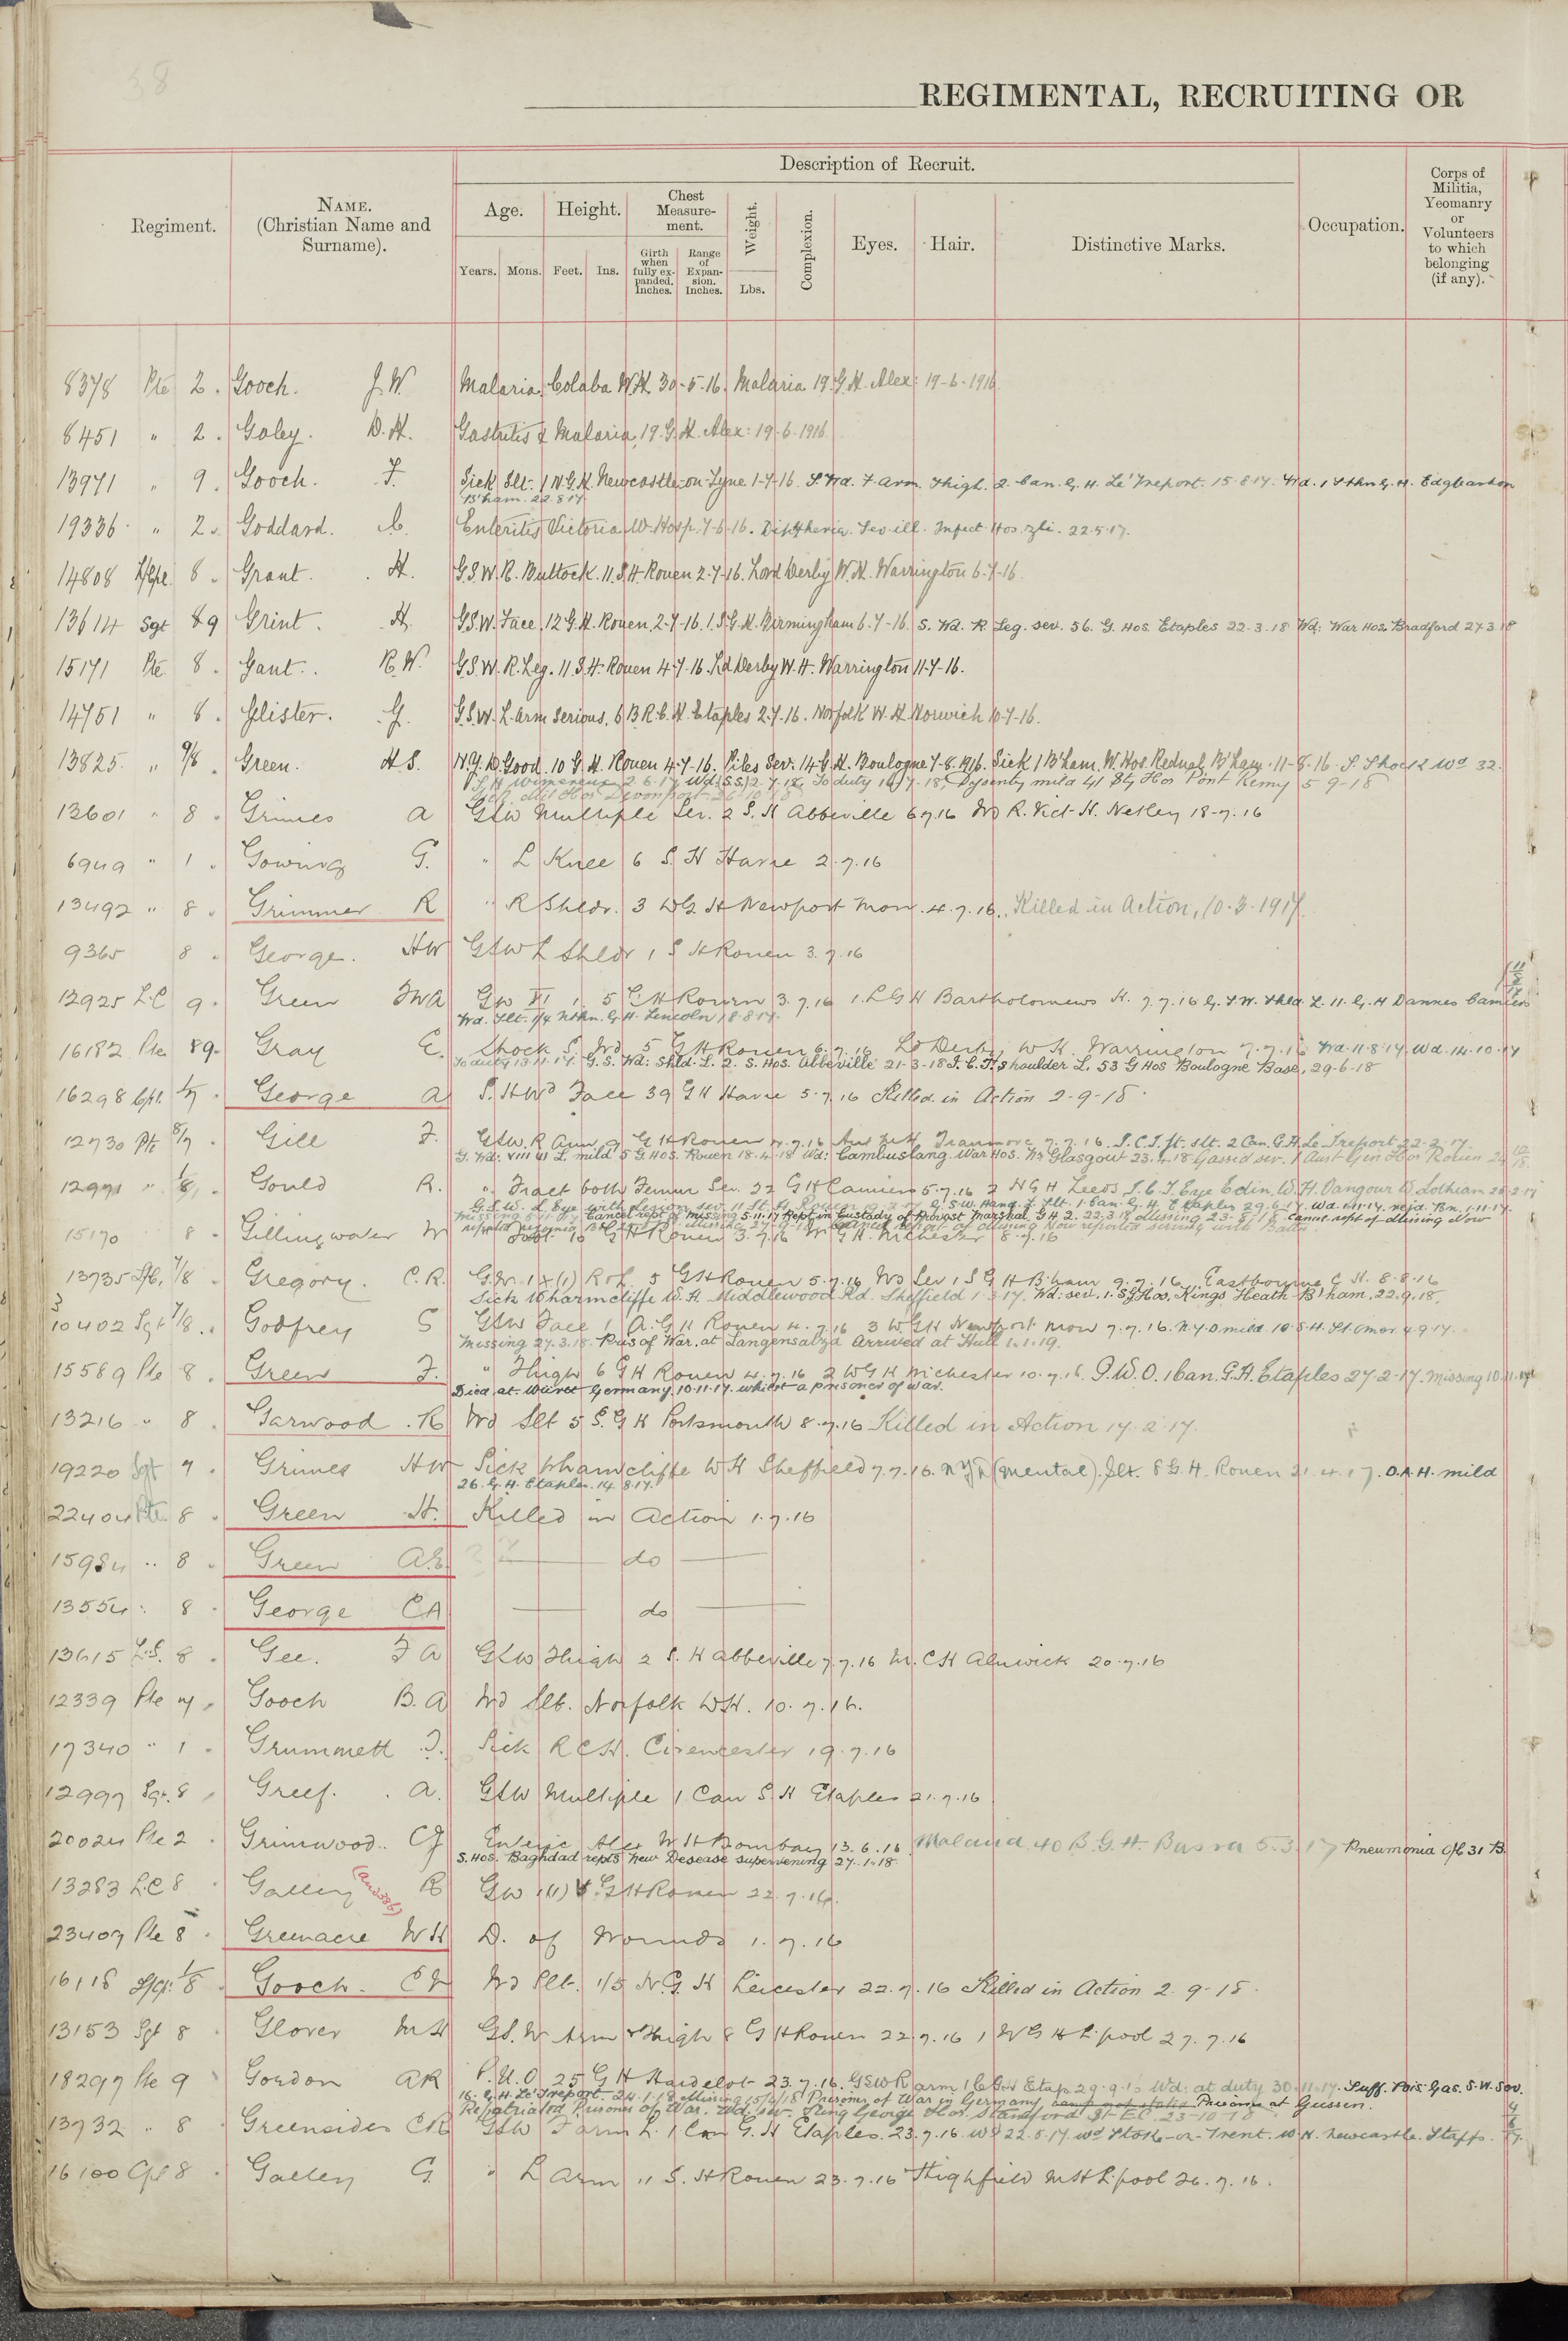 38
REGIMENTAL, RECRUITING OR
Regiment.
NAME.
(Christian Name and
Surname).
Description of Recruit.
Age.
Height.
Chest
Measure-
ment.
Weight.
Complexion.
Eyes.
Hair.
Distinctive Marks.
Occupation.
Corps of
Militia,
Yeomanry
or
Volunteers
to which
belonging
(if any).
Years.
Mons.
Feet.
Ins.
Girth
when
fully ex-
panded.
Inches.
Range
of
Expan-
sion.
Inches.
Lbs.
8378 Pte 2. Gooch. J.W. Malaria, Colaba W.H. 30-5-16. Malaria 19.G.H. Alex: 19-6-1916
8451 " 2. Goley. D.H. Gastritis & Malaria, 19.G.H. Alex: 19-6-1916
13971 " 9. Gooch. F. Sick Slt. 1 N.G.H. Newcastle-on-Tyne 1-7-16. S.Wd. F.arm. Thigh. 2. Can. G. H. Le Treport. 15.8.17. Wd. 1 Sthn G. H. Edgbaston
B'ham. 22.8.17.
19336 " 2. Goddard. C. Enteritis Victoria W. Hosp. 7-6-16. Diphtheria. Sev. ill. Infect. Hos. 22.5.17.
14808 L/Cpl. 8. Grant. H. G.S.W. R. Buttock. 11.S.H. Rouen 2-7-16. Lord Derby W.H. Warrington 6-7-16.
13614 Sgt 89 Grint. H. G.S.W. Face, 12 G.H. Rouen, 2-7-16. 1.S.G.H. Birmingham 6-7-16. S. Wd. R Leg. sev. 56. G. Hos. Etaples 22-3-18 Wd: War Hos. Bradford 27.3.18
15171 Pte 8. Gant. R.W. G.S.W. R. Leg. 11.S.H. Rouen 4-7-16. Ld Derby W.H. Warrington 11-7-16.
14751 " 8. Glister. G. G.S.W. L. arm Serious. 6 B.R.C.H. Etaples 2.7.16. Norfolk W.H. Norwich 10-7-16.
13825. " 9/8. Green. H.S. N.Y.D. Good. 10 G.H. Rouen 4-7-16. Piles Sev: 14 G.H. Boulogne 7-8-1916. Sick 1 B'ham. W. Hos. Rednal B'ham. 11-8-16. S. Shock Wd 32.
S.H. Wimereux 2.6.17. Wd: (S.S.) 2.7.18. To duty 10.7-18. Dysentry mild 41 Sty Hos Pont Remy 5-9-18
Mil Hos Devonport 26-10-18
13601 " 8. Grimes A GSW Multiple Ser. 2 S. H Abbeville 6.7.16 Wd R. Vict. H. Netley 18-7.16
6949 " 1. Gowing G. " L Knee 6 S. H Havre 2.7.16
13492 " 8. Grimmer R " R Shldr. 3 WG H Newport Mon. 4.7.16. Killed in Action, 10.3.1917.
9365 8. George. HW GSW L Shldr 1 S H Rouen 3.7.16
12925 L.C 9. Green FWA GW VI 1. 5 G.H Rouen 3.7.16 1.LGH Bartholomews H. 7.7.16 G.S.W. Shld. L. 11. G. H Dannes Camiers
Wd. Slt. 1/4 Nthn. G. H. Lincoln 18.8.17.
16182 Pte 89. Gray E. Shock S. Wd 5 G H Rouen 6.7.16 Ld Derby W.H. Warrington 7.7.16 Wd. 11.8.17. Wd. 14.10.17
To duty 13.11.17. G.S. Wd: Shld. L. 2. S. Hos. Abbeville 21-3-18 I.C.T. shoulder L. 53 G Hos Boulogne Base, 29-6-18
16298 Cpl. 1/7. George A S.H Wd Face 39 G H Havre 5.7.16 Killed in Action 2-9-18.
12730 Pte 8/7. Gill F. GSW. R Arm 9 G H Rouen 4.7.16 Tranmore 7.7.16. I.C.T. ft. slt. 2 Can. G.H. Le Treport 22.2.17.
G. Wd: VIII 41 L. mild 5 G. Hos. Rouen 18.4.18 Wd: Cambuslang War Hos. Nr Glasgow 23.4.18 Gassed sev. 1 Aust Gen Hos Rouen
12991 " 1/8. Gould R. " Fract both Femur Ser. 22 G H Camiers 5.7.16 2 NGH Leeds I.C.T. Eye Edin. W.H. Bangour W. Lothian 28.2.17
15170 8. Gillingwater W " Foot. 10 G H Rouen 3.7.16 G H. Nichester 8.7.16
13735 L/C. 7/8. Gregory. C.R. G.W. 1 x (1) R & L 5 G H Rouen 5.7.16 Wd Sev 1 S G H B'ham 9.7.16. Eastbourne C H. 8.8.16
Sick Wharncliffe W.H. Middlewood Rd. Sheffield 1.3.17. Wd: sev. 1. S G Hos. Kings Heath B'ham. 22.9.18.
10402 Sgt 7/8. Godfrey S GSW Face 1 A.G H Rouen 4.7.16 3 W G H Newport Mon 7.7.16. N.Y.D mild. 10. S.H. St. Omer 4.9.17.
Missing 27.3.18. Pris of War. at Langensalza Arrived at Hull 1.1.19.
15589 Pte 8. Green F. " Thigh 6 G H Rouen 4.7.16 2 W G H Nichester 10.7.16. P.U.O. 1 Can. G.H. Etaples 27-2-17. Missing 10.11.17
Died at Germany 10.11.17. whilst a prisoner of War.
13216 " 8. Garwood. R Wd Slt 5 S. G H Portsmouth 8.7.16 Killed in Action 17.2.17.
19220 Sgt 7. Grimes HW Sick Wharncliffe W H Sheffield 7.7.16. N.Y.D (Mental). Slt. 8 G. H. Rouen 21.4.17. D.A.H. mild
26. G. H. Etaples. 14.8.17.
22404 Pte 8 Green H. Killed in Action 1.7.16
15984 " 8. Green A.E. do
13554 " 8. George CA do
13615 L.S. 8. Gee. F A GSW Thigh 2 S. H Abbeville 7.7.16 M. C H Alnwick 20.7.16
12339 Pte 7. Gooch B.A Wd Slt. Norfolk W.H. 10.7.16.
17340 " 1. Grummett J. Sick R C H. Cirencester 19.7.16
12997 Sgt. 8. Greef. A. GSW Multiple 1 Can S. H Etaples 21.7.16
20024 Pte 2. Grimwood. CJ Enteric Alex W H Bombay 13.6.16. Malaria 40 B.G.H. Basra 5.3.17 Pneumonia O/C 31 B.
S. Hos. Baghdad repts New Desease supervening 27.1.18.
13283 L.C 8 Galley R GW 1(1) 5 G H Rouen 22.7.16.
23407 Pte 8 Greenacre W H D. of Wounds 1.7.16
16118 L/Cpl 1/8 Gooch. Wd Slt. 1/5 N.G. H Leicester 22.7.16 Killed in Action 2.9.18.
13153 Sgt 8 Glover M H GS.W Arm & Thigh 8 G H Rouen 22.7.16 1 W G H L'pool 27.7.16
18297 Pte 9 Gordon AR P.U.O 25 G H Hardelot 23.7.16. GSW R arm Etap 29.9.16 Wd: at duty 30.11.17. Suff. Pois Gas. S.W. Sev.
16. G.H. Le Treport 24.1.18 Missing 15/4/18 Prisoner of War in Germany at Gussen.
Repatriated Prisoner of War. Wd. sev. King George Hos Stamford St E.C. 23-10-18
13732 " 8 Greensides CR GSW F arm L. 1 Can G. H Etaples. 23.7.16. Wd 22.5.17. Wd Stoke-on-Trent. W.H. Newcastle. Staffs.
16100 Cpl 8. Galley G. " L Arm 11 S. H Rouen 23.7.16 Highfield M H L'pool 26.7.16.